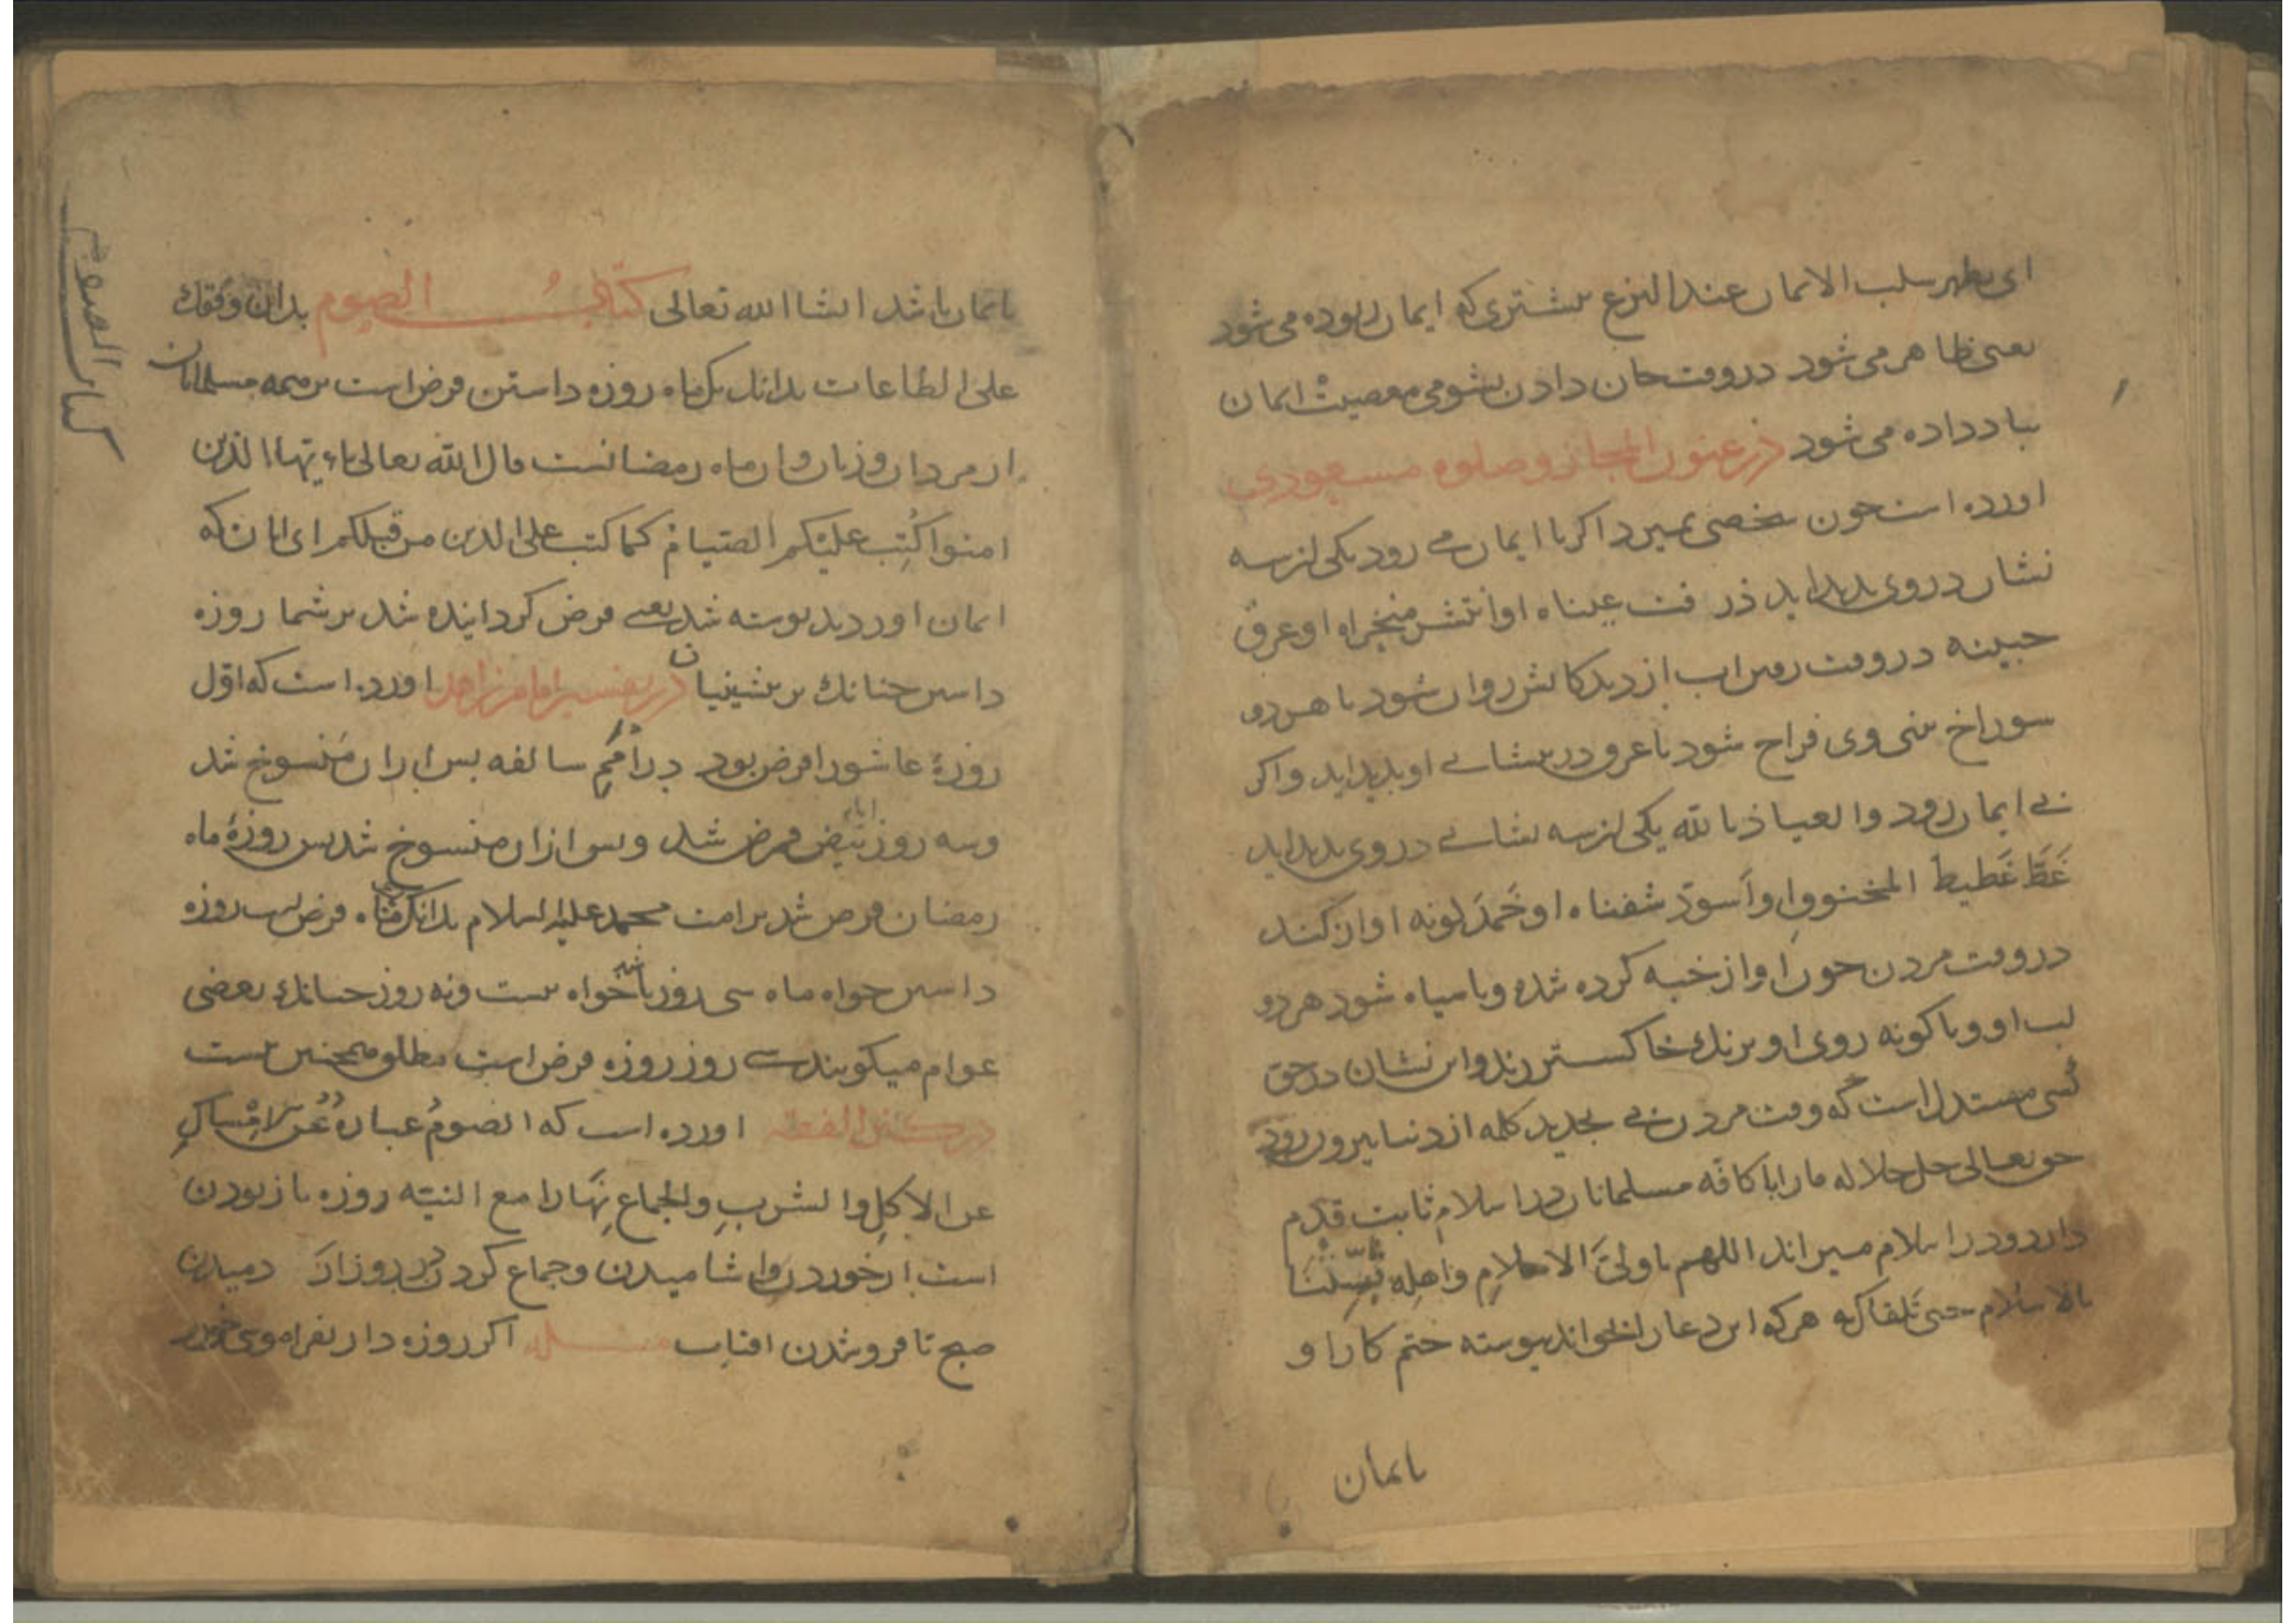 ای یظهر سلب الایمان عند النزع بیشتری که ایمان ربوده می شود
یعنی ظاهر می شود در وقت جان دادن بشومی معصیت ایمان
بباد داده می شود در عنون المجاز و صلوة مسعودی
اورده است چون شخصی بمیرد اگر با ایمان می رود یکی از سه
نشان در وی بدید اید ذرفت عیناه او انتشر منخراه او عرق
جبینه در وقت رفتن اب از دیدکانش روان شود یا هر دو
سوراخ بینی وی فراخ شود یا عرق در پیشانی او بدید اید و اکر
بی ایمان رود و العیاذ بالله یکی از سه نشانی در وی بدید اید
غَطَّ غَطیطَ المخنووق او اسودّ شفتاه او خَمَدَ لونه اواز کند
در وقت مردن چون اواز خبه کرده شده و یا سیاه شود هر دو
لب او و یا کونه روی او برنك خاکستر زند و این نشان در حق
کسی مستدل است که وقت مردن بی تجدید کلمه از دنیا بیرون رود
حق تعالی جل جلاله ما را با کافه مسلمانان در اسلام ثابت قدم
دارد و در اسلام میراند اللهم یا ولیَّ الاسلامِ واهلِه ثبّتنا
بالاسلام حتی نلقاك به هر که این دعا را بخواند پیوسته ختم کار او
بایمان
بایمان باشد انشا الله تعالی کتاب الصوم بدان وفقك
کتاب الصوم
علی الطاعات بدانك یك ماه روزه داشتن فرض است بر همه مسلمانان
از مردان و زنان و ان ماه رمضانست قال الله تعالی یاءیها الذین
امنوا کُتِب علیْکم الصیامُ کما کتب علی الذین من قبلکم ای انان که
ایمان اوردید نوشته شد یعنی فرض کردانیده شد بر شما روزه
داشتن چنانك بر پیشینیان در تفسیر امام زاهد اورده است که اوّل
روزهٔ عاشورا فرض بود در اُمَمِ سالفه پس از ان منسوخ شد
و سه روز ایام بیض فرض شد و پس از ان منسوخ شد پس روزهٔ ماه
رمضان فرض شد بر امت محمد علیه السلام بدانك ماه فرض است روزه
داشتن خواه ماه سی روز باشد خواه بیست و نه روز چنانك بعضی
عوام میکویند سی روز روزه فرض است مطلق همچنین نیست
در کنز الفقه اورده است که الصومُ عبارةٌ عن الامْساكِ
عن الاکلِ والشربِ والجماعِ نهارا مع النیّه روزه باز بودن
است از خوردن و اشامیدن و جماع کردن در روز از دمیدن
صبح تا فروشدن افتاب مسئله اکر روزه دار بفراموشی خورد